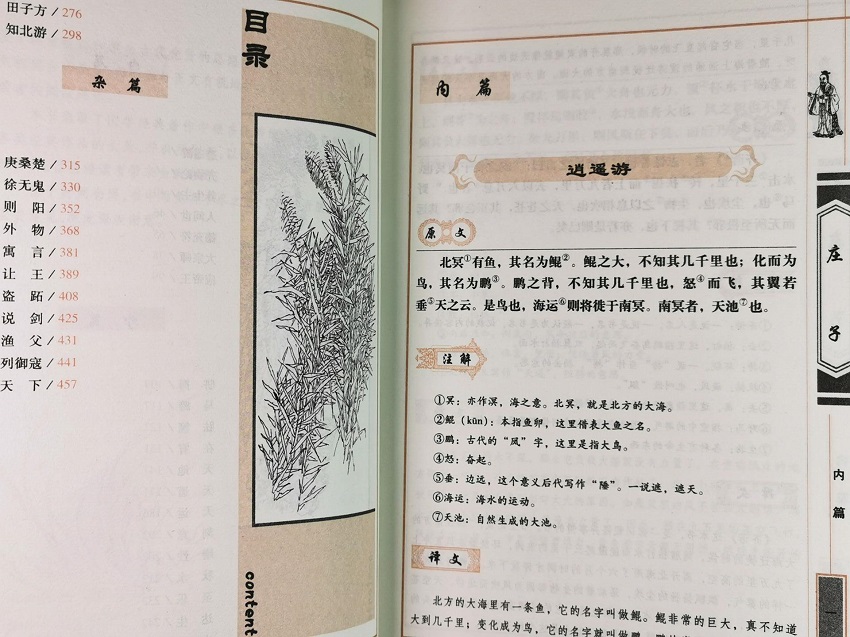 田子方/276
知北游/298
杂篇
庚桑楚/315
徐无鬼/330
则阳/352
外物/368
寓言/381
让王/389
盗跖/408
说剑/425
渔父/431
列御寇/441
天下/457
目录
content
内篇
逍遥游
原文
北冥①有鱼，其名为鲲②。鲲之大，不知其几千里也；化而为
鸟，其名为鹏③。鹏之背，不知其几千里也，怒④而飞，其翼若
垂⑤天之云。是鸟也，海运⑥则将徙于南冥。南冥者，天池⑦也。
注解
①冥：亦作溟，海之意。北冥，就是北方的大海。
②鲲（kūn）：本指鱼卵，这里借表大鱼之名。
③鹏：古代的“凤”字，这里是指大鸟。
④怒：奋起。
⑤垂：边远，这个意义后代写作“陲”。一说遮，遮天。
⑥海运：海水的运动。
⑦天池：自然生成的大池。
译文
北方的大海里有一条鱼，它的名字叫做鲲。鲲非常的巨大，真不知道
大到几千里；变化成为鸟，它的名字就叫做鹏。
庄子
内篇
一